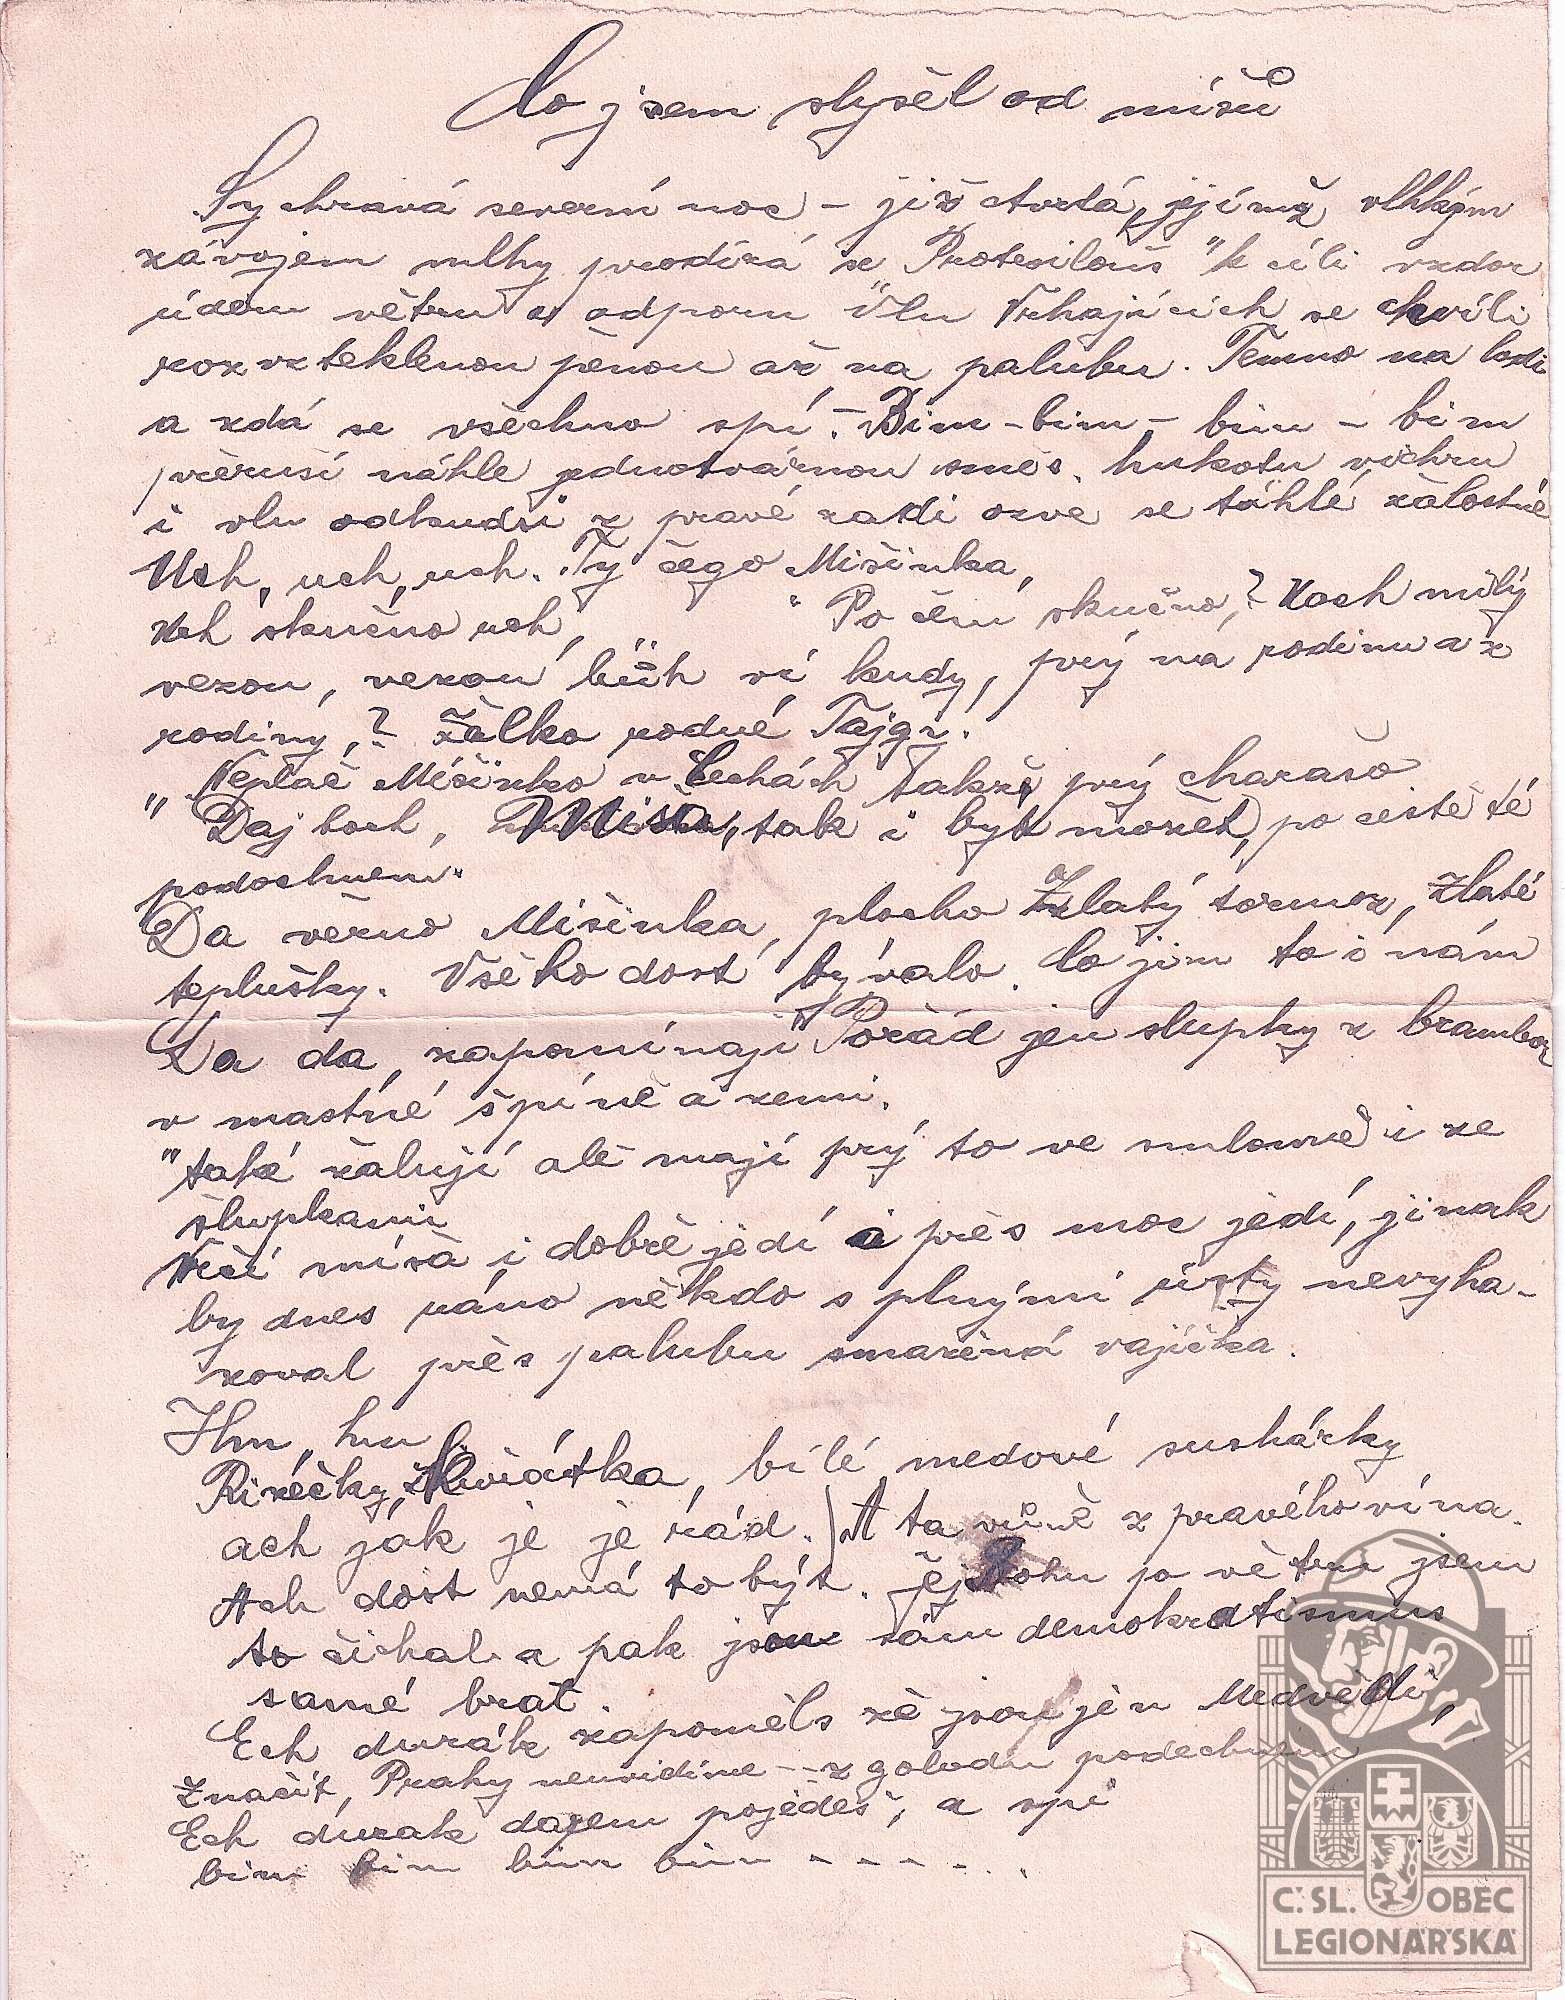 Co jsem slyšel od míšů
Sychravá severní noc – již čtvrtá, jejímž vlhkým
závojem mlhy prodírá se "Protesilaus" k cíli vzdor
údem větru a odporu vln vrhajících se chvíli
rozvzteklenou pěnou až na palubu. Temno na lodi
a zdá se všechno spí. – Bim – bim – bim – bim
přeruší náhle jednotvárnou směs hukotu vichru
i vln odkudsi z pravé zadi ozve se táhlé žalostné
Uch, uch, uch. Ty čego Mišinka,
Uch skučno uch, " Po čem skučno,? Hoch milý
vezou, vezou bůh ví kudy, prý na rodinu a z
rodiny,? Žálko rodné Tajgi.
" Neplač Míšinko v Čechách takžě prý charašo
" Daj boch, Miša, tak i být možět, po cestě té
podochnem"
Da věrno Mišinka, plocho Zlatý tormoz, zlaté
teplušky. Všeho dost bývalo. Co jim to i nám
Da da, zapomínají "Pořád jen slupky z brambor
v mastné špíně a zemi.
"také žalují ale mají prý to ve smlouvě i se
šlupkami
Vrčí míša i dobře jedí i přes moc jedí, jinak
by dnes ráno někdo s plnými ústy nevyha-
zoval přes palubu smažená vajíčka.
Hm, hm
Řízečky, kuřátka, bílé medové suchárky
ach jak je je rád. A ta vůně z pravého vína.
Ach dost nemá to být. Jej Bohu po větru jsem
to čichal a pak jsou sám demokratismus
samé brat.
Ech durák zapoměls že jsou jen Medvědi,
Značit, Prahy neuvidíme – z goladu podechnem
Ech durak dajem pojědeš, a spi
bim bim bim bim – – – – . .
Č. SL. OBEC
LEGIONÁŘSKÁ